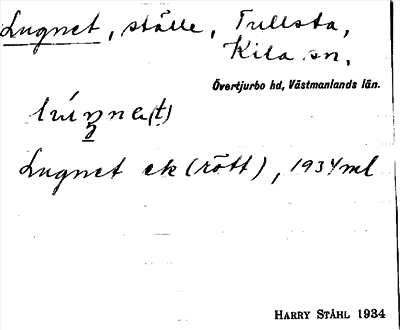 Lugnet, ställe, Tullsta,
Kila sn,
Övertjurbo hd, Västmanlands län.
Lugnet ek (rött), 1934 ml
HARRY STÅHL 1934